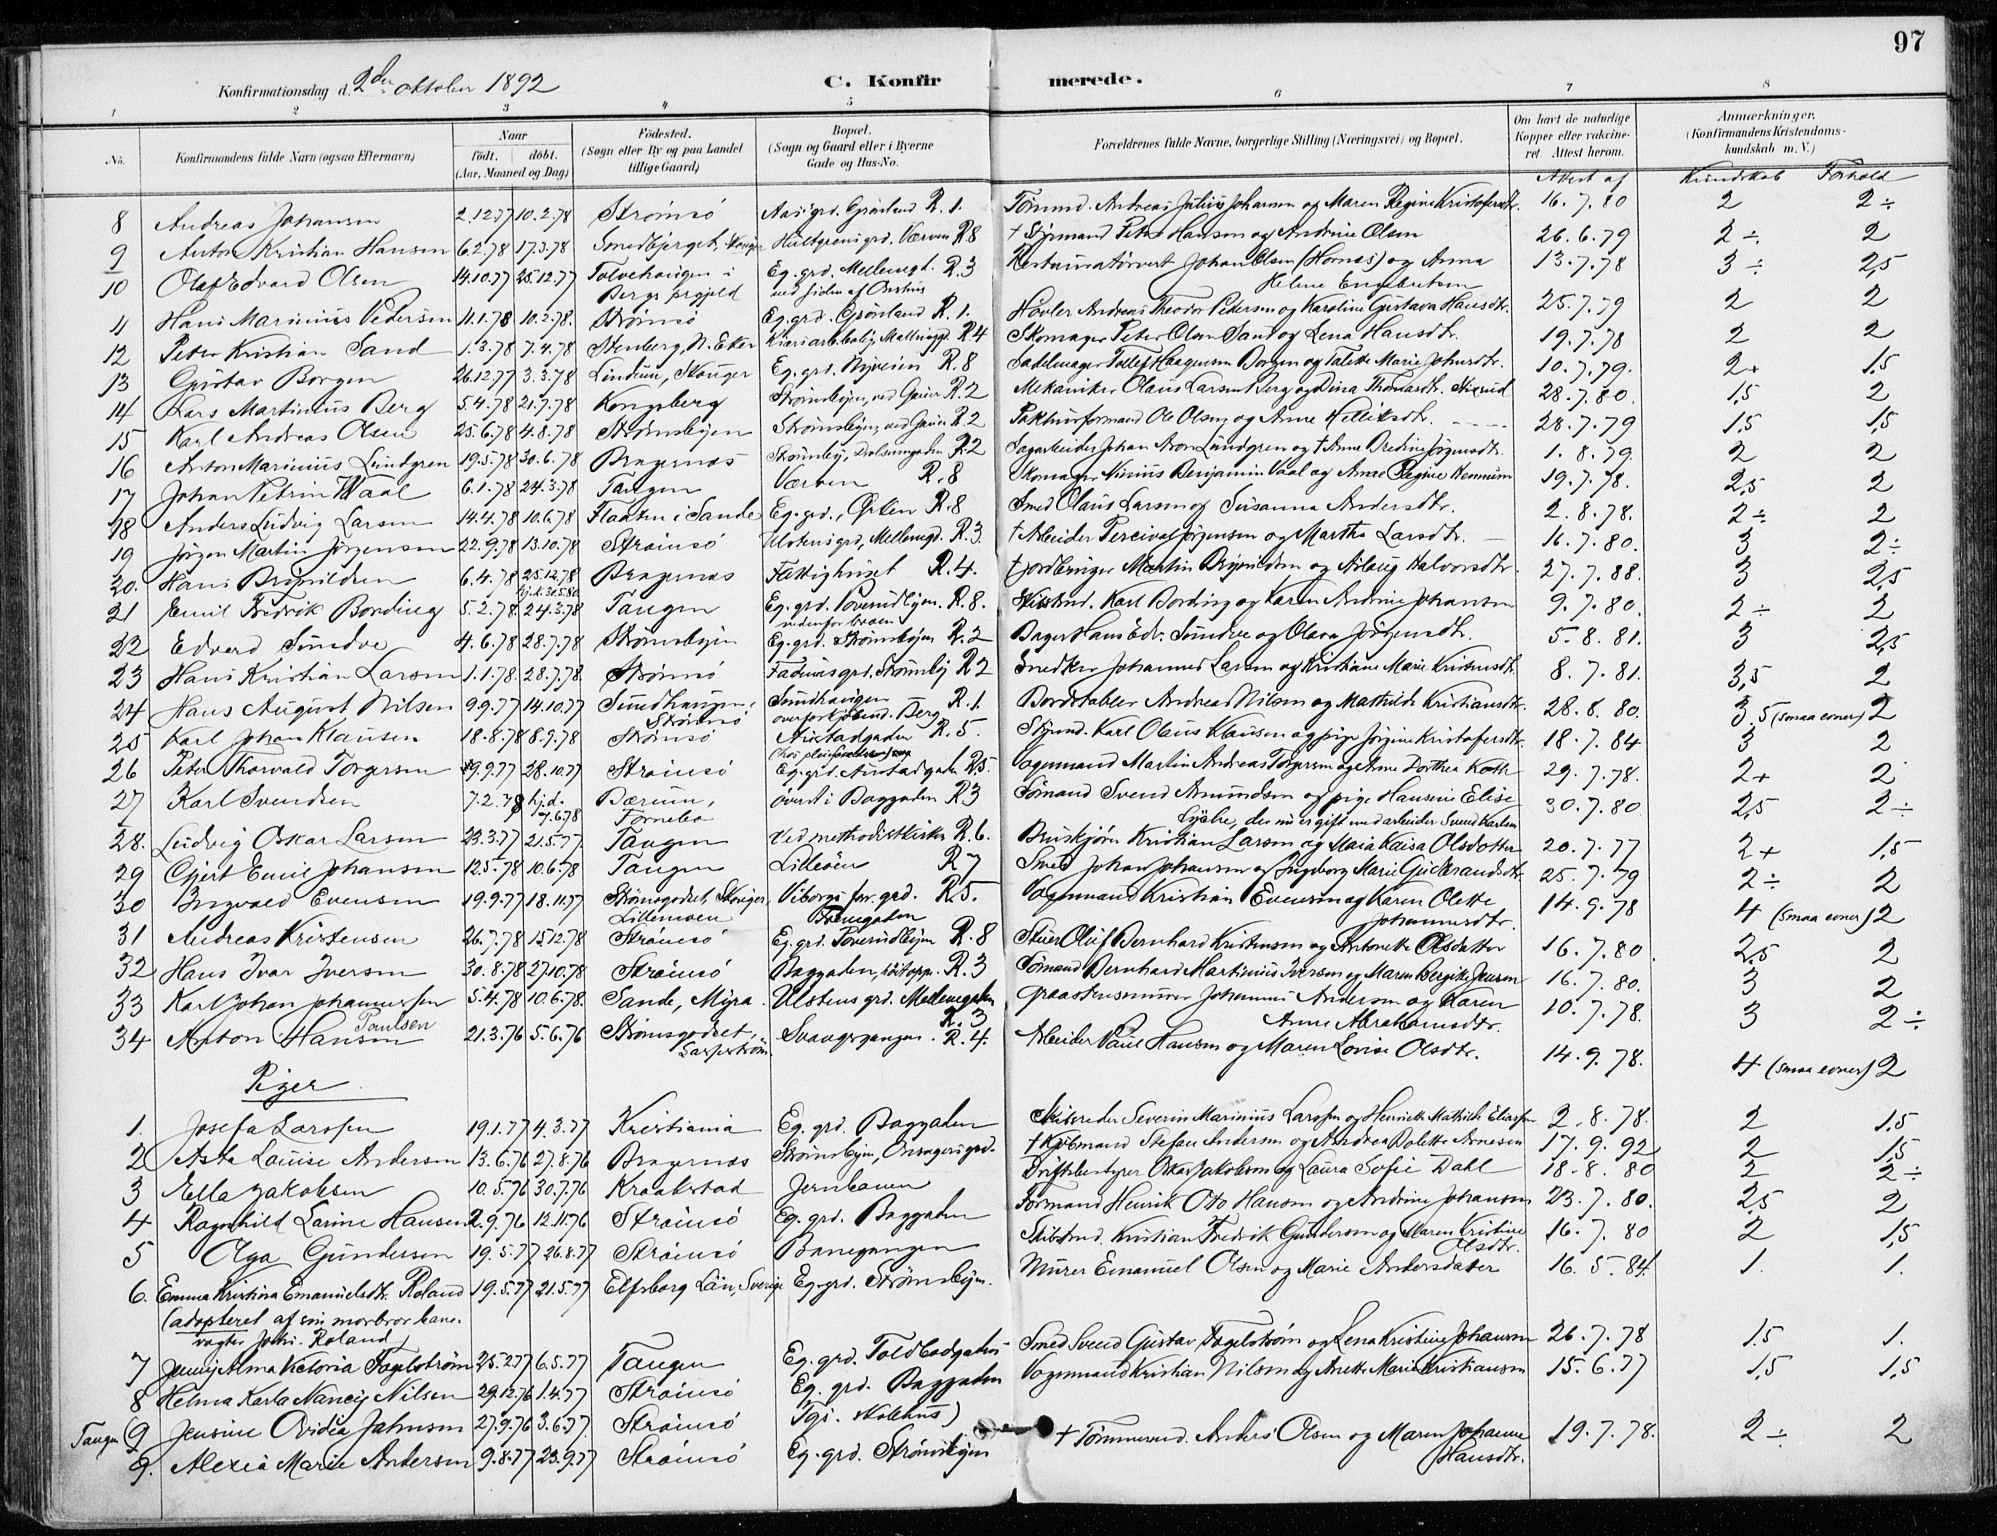 97
Konfirmationsdag d. 2den oktober 1892
C. Konfirmerede.
1 2 3 4 5 6 7 8
No. Konfirmandens fulde Navn (ogsaa Efternavn) Naar født. døbt. (Aar, Maaned og Dag) Fødested. (Sogn eller By og paa Landet tillige Gaard) Bopæl. (Sogn og Gaard eller i Byerne Gade og Hus-No. Forældrenes fulde Navne, borgerlige Stilling (Næringsvei) og Bopæl. Om havt de naturlige Kopper eller vakcineret. Attest herom. Anmærkninger. (Konfirmandens Kristendomskundskab m. V.)
Attest af Kundskab Forhold
8 Andreas Johansen 2.12.77 10.2.78 Strømsø Aas' grd. Grønland R. 1. Tømmd. Andreas Julius Johansen og Maren Regine Kristofersdtr. 16.7.80 2 2÷
9 Anton Kristian Hansen 6.2.78 17.3.78 Smedbjerget, Skouger Hultgrens grd. Værven R. 8 † Styrmand Peter Hansen og Andrine Olsen 26.6.79 2÷ 2
10 Olaf Edvard Olsen 14.10.77 25.12.77 Tolvehaugen i Eg. grd. Mellemgd. R. 3 Restauratørvert Johan Olsen (Hornæs) og Anna 13.7.78 3÷ 2,5
Bergs prgjeld ved siden af Helene Engebretsen
11 Hans Marinius Pedersen 11.1.78 10.2.78. Strømsø Eg. grd. Grønland R. 1. Høvler Andreas Theodor Pedersen og Karoline Gustava Hansdtr. 25.7.79 2 2
12 Peter Kristian Sand 1.3.78 7.4.78 Stenberg, N. Eker R. 4 Skomager Peter Olsen Sand og Lena Hansdtr. 19.7.78 2 2
13 Gustav Borgen 26.12.77 3.3.78 Lindum, Skouger Eg. grd. Nyveien R. 8 Sadelmager Tollef Haagensen Borgen og Talette Marie Johnsdtr. 10.7.79. 2+ 1,5
14 Lars Martinius Berg 5.4.78 21.7.78 Kongsberg Strømsbyen, ved R. 2 Mekaniker Olaus Larsen Berg og Dina Thomasdtr. 28.7.80. 1,5 2
15 Karl Andreas Olsen 25.6.78 4.8.78 Strømsbyen Strømsbyen, ved R. 2 Pakhusformand Ole Olsen og Anne Helliksdtr. 28.7.79 1,5 1,5
16 Anton Marinius Lundgren 19.5.78 30.6.78 Bragernæs Strømsby, R. 2 Sagarbeider Johan Aron Lundgren og † Anne Dredine Jørgensdtr. 1.8.79. 2 2
17 Johan Petrin Waal 6.1.78 24.3.78 Tangen Værven R. 8 Skomager Benjamin Vaal og Anne Regine Rennum 19.7.78. 2,5 2
18 Anders Ludvig Larsen 14.4.78 10.6.78 Flaaten i Sande Eg. grd., Ørken R. 8 Smed Olaus Larsen og Susanna Andersdtr. 2.8.78. 2÷ 2
19 Jørgen Martin Jørgensen 22.9.78 13.10.78 Strømsø Ulstens grd, Mellemgd. R. 3. † Arbeider Percival Jørgensen og Martha Larsdtr. 16.7.80. 3 2÷
20. Hans Brynildsen 6.4.78 25.12.78 Bragernæs Fattighuset R. 4. † Jordbruger Martin Brynildsen og Aslaug Halvorsdtr. 27.7.88. 3 2,5
21 Emil Fredrik Bording 5.2.78. 24.3.78 Tangen Eg. grd. Toverudbyen. R. 8. Skibstmd. Karl Bording og Karen Andrine Johansen 9.7.80. 2÷ 2
22 Edvard Sundve 4.6.78 28.7.78 Strømsbyen Eg. grd. Strømsbyen R. 2 Bager Hans Edv. Sundve og Olava Jørgensdtr. 5.8.81. 3 2,5
23 Hans Kristian Larsen 1.1.78 28.7.78. Strømsø Strømsby R. 2 Snedker Johannes Larsen og Kristiane Marie Kristensdtr. 8.7.81. 3,5 2
24 Hans August Nilsen 9.9.77 14.10.77 Sundhaugen, Sundhaugen R. 1. Bordstabler Andreas Nilsen og Mathilde Kristiansdtr. 28.8.80. 3,5 (smaa evner) 2
Strømsø Berg
25 Karl Johan Klausen 18.8.78 8.9.78 Strømsø Austadgaden R. 5. Stymd. Karl Olaus Klausen og pige Jørgine Kristofersdtr. 18.7.84 3 2
26 Peter Thorvald Torgersen 29.9.77 28.10.77 Strømsø Eg. grd. Austadgaden R. 5. Vognmand Martin Andreas Torgersen og Anne Dorthea Koth 29.7.78. 2+ 2
27 Karl Svendsen 7.2.78 hj.d. Bærum, øverst i Baggaden R. 3 Sømand Svend Amundsen og pige Hansine Elise 30.7.80 2,5 2÷
7.6.78 Fornebo der nu er gift med arbeider Svend Karlsen
28. Ludvig Oskar Larsen 23.3.77 21.5.77 Tangen Ved methodistkirken R. 6. Kristian Larsen og Maia Kaisa Olsdotter 20.7.77 2+ 1,5
29 Gjert Emil Johansen 12.5.78 10.6.78 Tangen Lilleøen R. 7 Smed Johan Johansen og Ingeborg Marie Gudbrandsdtr. 25.7.79 2÷ 2
30 Ingvald Evensen 19.9.77 18.11.77 Strømsgodset, Skouger, Viborgs for. grd. R. 5. Vognmand Kristian Evensen og Karen Olette 14.9.78 4 (smaa evner) 2
Lillemoen Tomegaden Johannesdtr.
31 Andreas Kristensen 26.7.78 15.12.78 Strømsø Eg. grd. Toverudbyen R. 8 Stuer Oluf Bernhard Kristensen og Antonette Olsdatter 16.7.80. 2,5 2
32 Hans Ivar Iversen 30.8.78 27.10.78 Strømsø Baggaden, R. 3 Sømand Bernhard Martinius Iversen og Maren Bergitte Jensen 16.7.80. 3 2
33 Karl Johan Johannessen 5.4.78 10.6.78. Sande, Myra. Ulstens grd. Mellemgaden R. 3 Graastensmurer Johannes Andersen og Karen 10.7.78. 3 2÷
Anne Abrahamsdtr.
34 Anton Hansen Paulsen 21.3.76 5.6.76 Strømsgodset, Svangsgangen. R. 4. Arbeider Paul Hansen og Maren Lovise Olsdtr. 14.9.78. 4 (smaa evner) 2
Piger
1. Josefa Larssen 19.1.77 4.3.77 Kristiania Eg. grd. Baggaden Skibsreder Severin Marinius Larssen og Henriette Mathilde Eliassen 2.8.78. 2 1,5
2 Asta Louise Andersen 13.6.76 27.8.76 Bragernæs Strømsbyen, Onsagers grd. † Kjøbmand Stefan Andersen og Andrea Dolette Arnesen 17.9.92 2 1,5
3 Ella Jakobsen 10.5.76 30.7.76 Kraakstad Jernbanen Driftsbestyrer Oskar Jakobsen og Laura Sofie Dahl 18.8.80 2 2÷
4 Ragnhild Larine Hansen 2.9.76 12.11.76 Strømsø Eg. grd. Baggaden Formand Henrik Otto Hansen og Andrine Johansen 23.7.80. 2,5 2
5 Olga Gundersen 19.5.77 26.8.77 Strømsø Banegangen Skibstmd. Kristian Fredrik Gundersen og Maren Kristine 16.7.80 2 1,5
Olsdtr.
6. Emma Kristina Emanuelsdtr. Roland 19.5.77 21.5.77 Elfsborg Län, Sverige Eg. grd. Strømsbyen. Murer Emanuel Olsen og Marie Andersdatter 16.5.84. 1. 1.
(adopteret af sin morbror banevogter Johs. Roland)
7 Jenny Alma Victoria Fagelstrøm 25.2.77 6.5.77 Tangen Eg. grd. Toldbodgaden Smed Svend Gustav Fagelstrøm og Lena Kristine Johansen 26.7.78 1.5 1.
8 Helma Karla Nancy Nilsen 29.12.76 1.4.77 Strømsø Eg. grd. Baggaden Vognmand Kristian Nilsen og Anette Marie Kristiansen 15.6.77 1,5 1,5
Tangen (9 Jensine Ovidia Jahnsen 27.9.76 3.6.77. Strømsø Tgs. skolehus)
9. Alexia Marie Andersen 9.8.77 23.9.77 Strømsø Eg. grd. Strømsbyen † Tømmermd. Anders Olsen og Maren Johanne 19.7.78. 2÷ 2
Hansdtr.